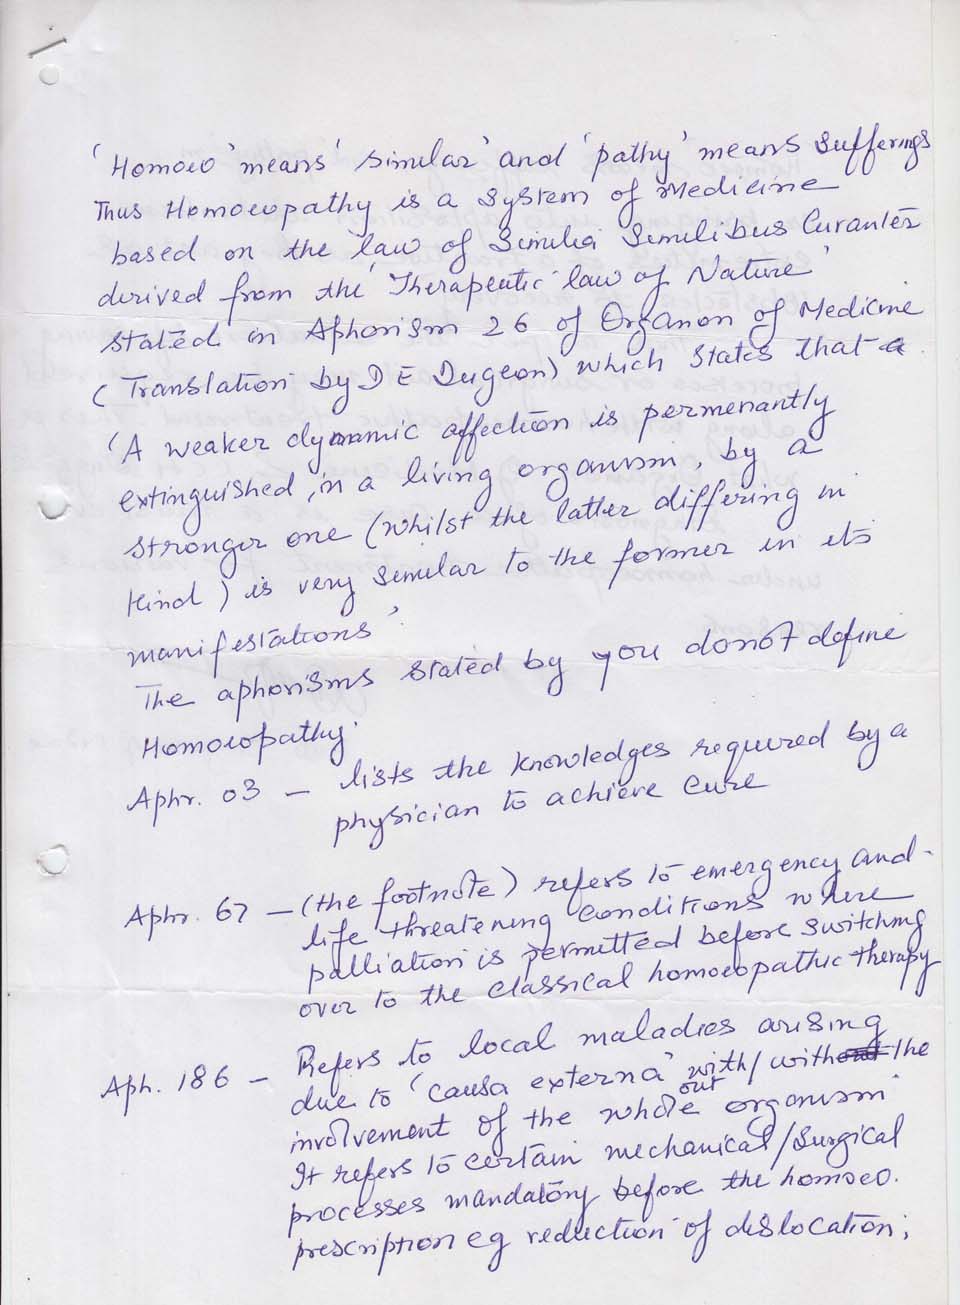 'Homoeo' means 'similar' and 'pathy' means sufferings
Thus Homoeopathy is a system of Medicine
based on the law of Similia Similibus Curanter
derived from the 'Therapeutic law of Nature'
stated in Aphorism 26 of Organon of Medicine
(Translation by DE Dugeon) which states that
'A weaker dynamic affection is permenantly
extinguished, in a living organism, by a
stronger one (whilst the latter differing in
kind) is very similar to the former in its
manifestations'
The aphorisms stated by you donot define
Homoeopathy.
Aphr. 03 – lists the knowledges required by a
physician to achieve cure
Aphr. 67 – (the footnote) refers to emergency and
life threatening conditions where
palliation is permitted before switching
over to the classical homoeopathic therapy
Aph. 186 – Refers to local maladies arising
due to 'causa externa' with/without the
involvement of the whole organism
It refers to certain mechanical/surgical
processes mandatory before the homoeo.
prescription eg reduction of dislocation;